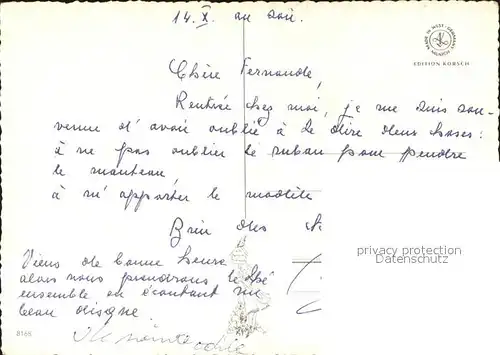 14. X. au soir.
MADE IN WEST-GERMANY MUNICH
EDITION KORSCH
Chère Fernande,
Rentrée chez moi, je me suis sou-
venue d'avoir oublié à te dire deux choses:
à ne pas oublier le ruban pour pendre
le manteau,
à m'apporter le modèle
Bien des
Viens de bonne heure
alors nous prendrons le thé
ensemble en écoutant un
beau disque
privacy protection
Datenschutz
8166